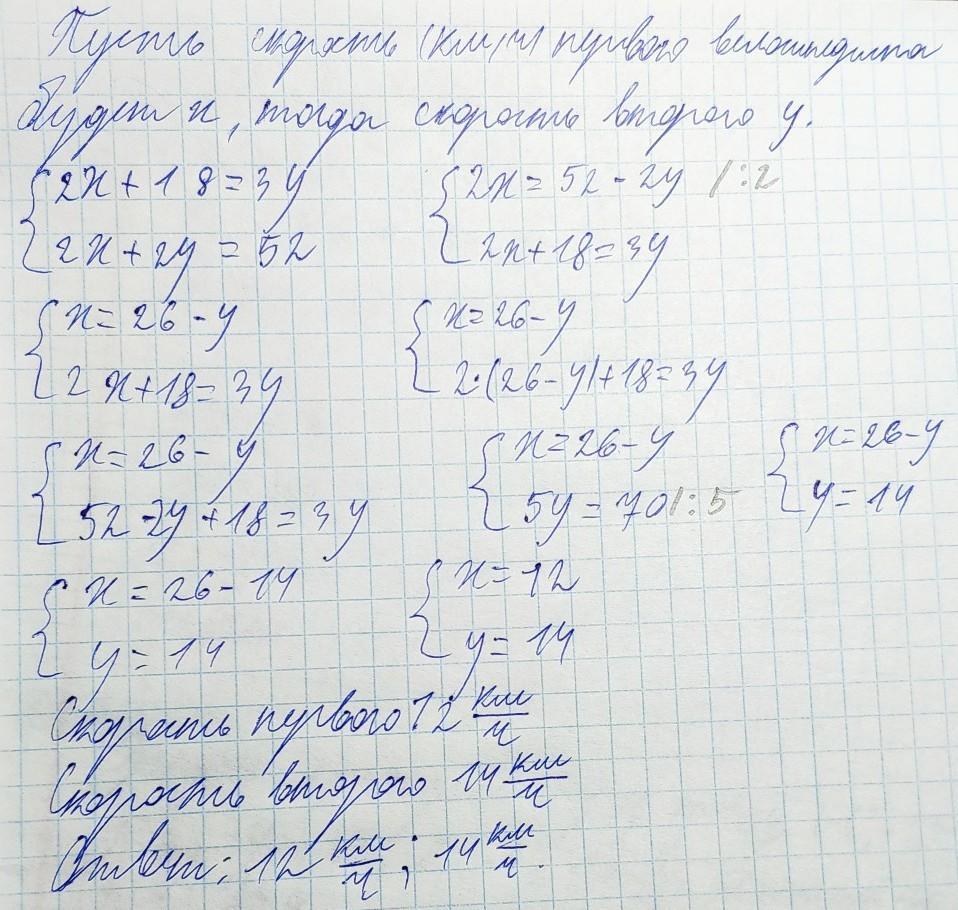 Пусть скорость (км/ч) первого велосипедиста
будет x, тогда скорость второго y.
{2x + 18 = 3y {2x = 52 - 2y /:2
{2x + 2y = 52 {2x + 18 = 3y
{x = 26 - y {x = 26 - y
{2x + 18 = 3y {2·(26 - y) + 18 = 3y
{x = 26 - y {x = 26 - y {x = 26 - y
{52 - 2y + 18 = 3y {5y = 70 /:5 {y = 14
{x = 26 - 14 {x = 12
{y = 14 {y = 14
Скорость первого 12 км/ч
Скорость второго 14 км/ч
Ответ: 12 км/ч; 14 км/ч.